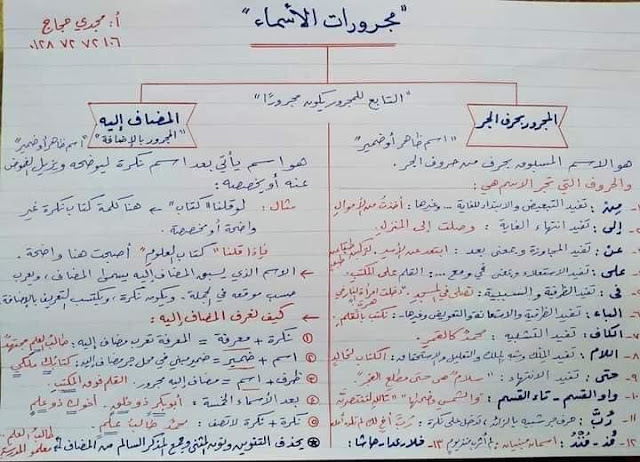 "مجرورات الأسماء"
أ: مجدي حجاج
"التابع للمجرور يكون مجرورًا"
المجرور بحرف الجر
"اسم ظاهر أو ضمير"
هو الاسم المسبوق بحرف من حروف الجر.
والحروف التي تجر الاسم هي:
مِن: تفيد التبعيض والابتداء للغاية ... وغيرها: أخذتُ من الأموالِ
إلى: تفيد انتهاء الغاية: وصلت إلى المنزلِ.
عن: تفيد المجاوزة وبمعنى بعد: ابتعد عن الأسدِ.
على: تفيد الاستعلاء وبمعنى في ومع ...: القلم على المكتبِ.
في: تفيد الظرفية والسببية:
٦- الباء: تفيد الظرفية والاستعانة والتعويض وغيرها- نكتب بالقلمِ.
٧- الكاف: تفيد التشبيه: محمدٌ كالقمرِ.
٨- اللام: تفيد الملك وشبه الملك والتعليل والاستحقاق: الكتاب لخالدٍ
٩- حتى: تفيد الانتهاء: "سلامٌ هي حتى مطلع الفجرِ"
١٠- واو القسم - تاء القسم: "والشمسِ وضحاها"
١١- رُبَّ: حرف جر شبيه بالزائد، تدخل على نكرة: رُبَّ أخٍ لك لم تلده أمك
١٢- مُذ - مُنْذُ: ١٣- خلا، عدا، حاشا:
المضاف إليه
"المجرور بالإضافة" "اسم ظاهر أو ضمير"
هو اسم يأتي بعد اسم نكرة ليوضحه ويزيل الغموض
عنه أو يخصصه:
مثال: لو قلنا "كتاب" ← هنا كلمة كتاب نكرة غير
واضحة أو مخصصة.
فإذا قلنا "كتاب العلومِ" أصبحت هنا واضحة.
← الاسم الذي يسبق المضاف إليه يسمى المضاف، ويعرب
حسب موقعه في الجملة. ويكون نكرة، ويكتسب التعريف بالإضافة.
← كيف نعرف المضاف إليه:
١ نكرة + معرفة = المعرفة تعرب مضاف إليه: طالبُ العلمِ مجتهدٌ
٢ اسم + ضمير = ضمير مبني في محل جر مضاف إليه: كتابُك ملكي
٣ ظرف + اسم = مضاف إليه مجرور. القلم فوق المكتبِ.
٤ بعد الأسماء الخمسة: أبو بكرٍ ذو خلقٍ. أخوك ذو علمٍ.
٥ نكرة + نكرة لا تصف: محمدٌ طالبُ علمٍ.
* يحذف التنوين ونون المثنى وجمع المذكر السالم من المضاف
طالبا العلمِ
معلمو المدرسةِ